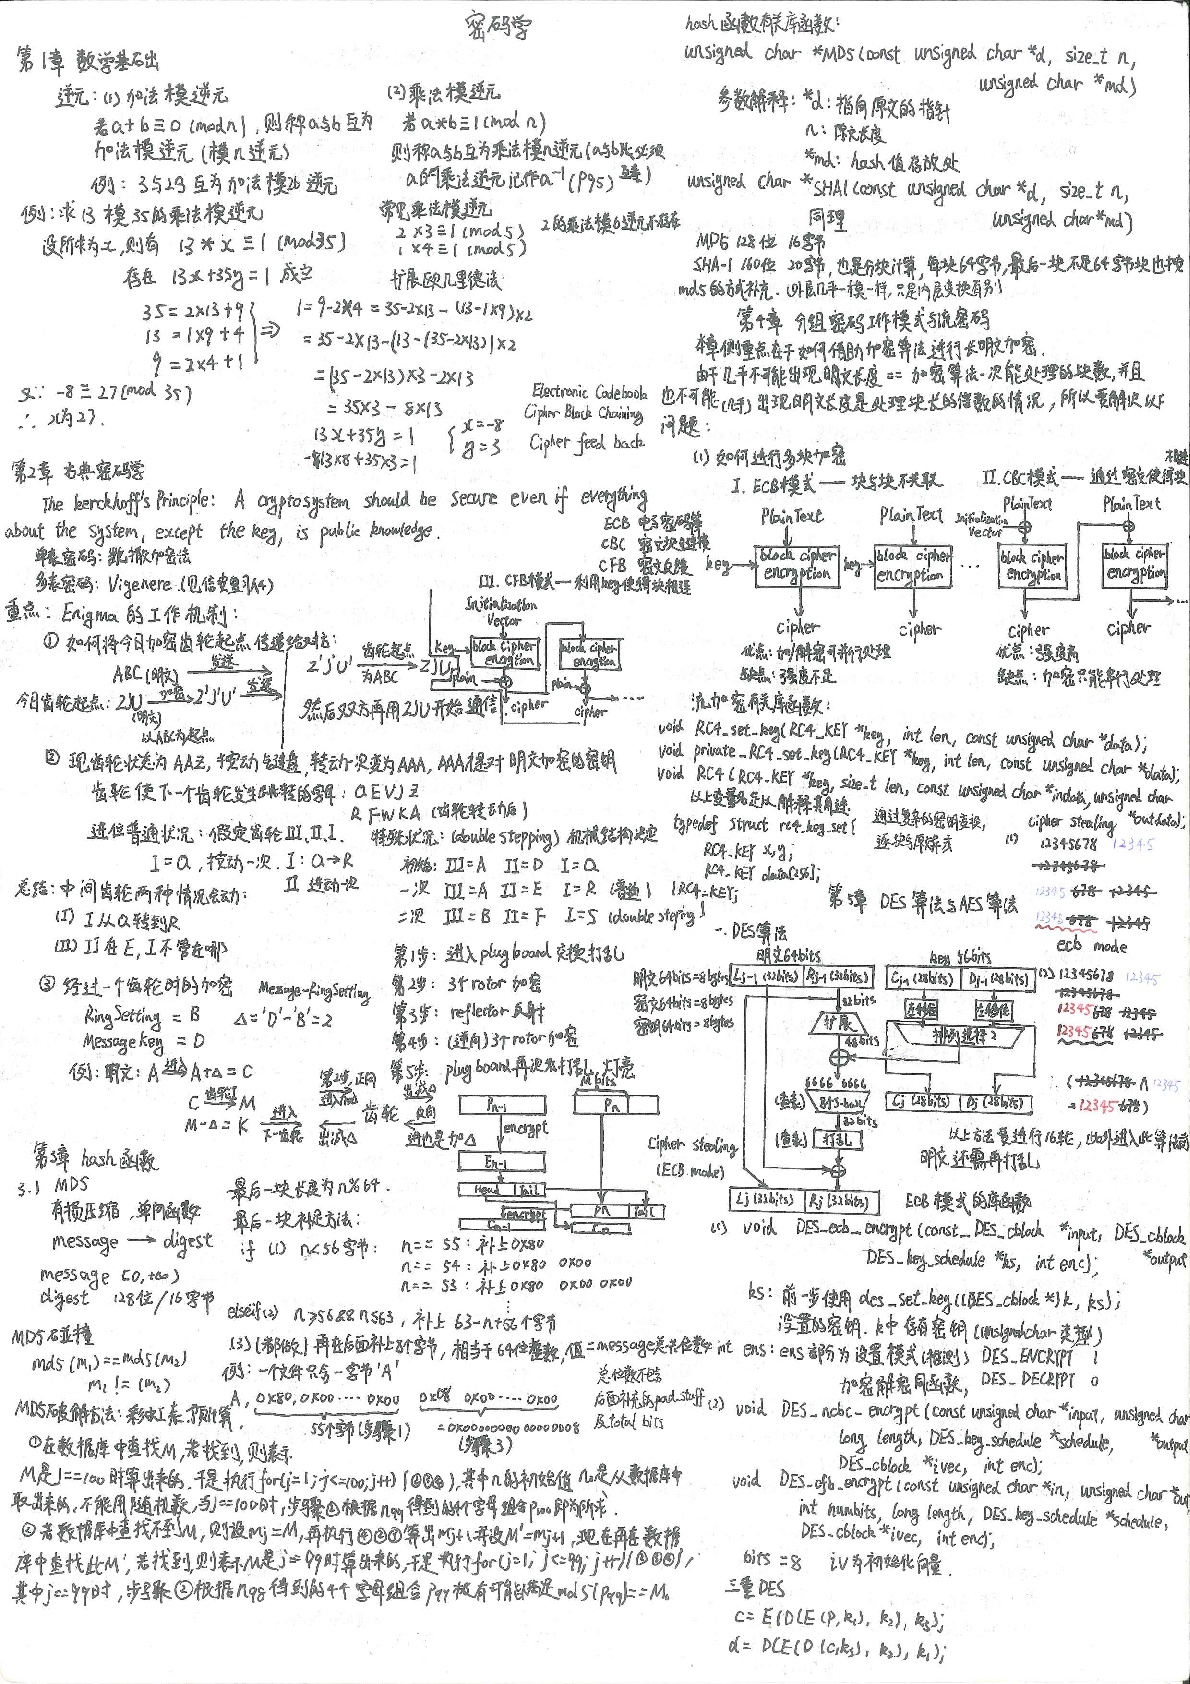 密码学
第1章 数学基础
逆元:(1)加法模逆元
若a+b≡0(modn),则称a与b互为
加法模逆元(模n逆元)
例:3与23互为加法模26逆元
(2)乘法模逆元
若a*b≡1(mod n)
则称a与b互为乘法模n逆元(a与b
a的乘法逆元记作a⁻¹(P95)
例:求13模35的乘法模逆元
设所求为x,则有 13*x≡1(mod35)
存在 13x+35y=1 成立
常见乘法模逆元
2×3≡1(mod5)
1×4≡1(mod5)
2的乘法模6逆元不存在
扩展欧几里德法
35=2×13+9
13=1×9+4
9=2×4+1
⇒
1=9-2×4=35-2×13-(13-1×9)×2
=35-2×13-(13-(35-2×13))×2
=(35-2×13)×3-2×13
=35×3-8×13
13x+35y=1
-8×13+35×3=1
x=-8
y=3
又∵ -8≡27(mod 35)
∴ x为27.
Electronic Codebook
Cipher Block Chaining
Cipher feed back
第2章 古典密码学
The kerckhoff's Principle: A cryptosystem should be secure even if everything
about the system, except the key, is public knowledge.
单表密码:凯撒加密法
多表密码:Vigenere
ECB 电子密码簿
CBC 密文块链接
CFB 密文反馈
重点:Enigma的工作机制:
① 如何将今日加密齿轮起点传递给对方:
ABC(明文) 发送
今日齿轮起点:ZJU 加密 Z'J'U' 发送
(明文)
以ABC为起点
Z'J'U' 齿轮起点为ABC ZJU
然后双方再用ZJU开始通信
III. CFB模式—利用key使得块相连
Initialization
Vector
key
block cipher
encryption
block cipher
encryption
plain
plain
cipher
cipher
② 现齿轮状态为AAZ,按动键盘,转动一次变为AAA,AAA是对明文加密的密钥
齿轮使下一个齿轮发生跳转的字母:Q E V J Z
R F W K A (齿轮转动后)
进位普通状况:假定齿轮III、II、I.
I=Q,按动一次,I:Q→R
II 进动一次
特殊状况:(double stepping) 机械结构决定
初始:III=A II=D I=Q
一次 III=A II=E I=R (普通)
二次 III=B II=F I=S (double steping)
总结:中间齿轮两种情况会动:
(I) I从Q转到R
(II) II在E,I不管在哪
③ 经过一个齿轮时的加密 Message-RingSetting
RingSetting = B Δ='D'-'B'=2
MessageKey = D
例:明文:A 进入 A+Δ=C
C 齿轮I M
M-Δ=K 进入下一齿轮
第1步:进入plugboard交换打乱
第2步:3个rotor加密
第3步:reflector反射
第4步:(逆向)3个rotor加密
第5步:plugboard再次打乱,灯亮
齿轮
出减Δ
反向
进也是加Δ
M bits
Pn-1
Pn
encrypt
En-1
Head Tail
Pn Tail
encrypt
Cn-1
Cn
Cipher stealing
(ECB mode)
第3章 hash函数
3.1 MD5
有损压缩,单向函数
message → digest
message [0,+∞)
digest 128位/16字节
最后一块长度为n%64.
最后一块补足方法:
if (1) n<56字节:
n==55:补上0x80
n==54:补上0x80 0x00
n==53:补上0x80 0x00 0x00
elseif(2) n≥56&&n≤63,补上63-n+56个字节
(3)(都做)再在后面补上8个字节,相当于64位整数,值=message总共位数
例:一个文件只含一字节'A'
A, 0x80,0x00 ···· 0x00 0x08 0x00 ···· 0x00
55个字节(步骤1) =0x0000000000000008
(步骤3)
总位数不包
后面补充的pad_stuff
及total bits
MD5碰撞
md5(m₁)==md5(m₂)
m₁!=(m₂)
MD5破解方法:彩虹表.预计算.
①在数据库中查找M,若找到,则表示
M是j==100时算出来的,于是执行for(j=1;j<=100;j++){①②③},其中n的初始值n₀是从数据库中
取出来的,不能用随机数,当j==100时,步骤②根据n₉₉得到的4个字母组合P₁₀₀即为所求.
②若数据库中查找不到M,则设mj=M,再执行②③算出mj+1,再设M'=mj+1,现在再在数据
库中查找此M',若找到,则表示M是j=99时算出来的,于是执行for(j=1;j<=99;j++){①②③},
其中j==99时,步骤②根据n₉₈得到的4个字母组合P₉₉极有可能满足md5(P₉₉)==M.
hash函数有关库函数:
unsigned char *MD5(const unsigned char *d, size_t n,
unsigned char *md)
参数解释:*d:指向原文的指针
n:原文长度
*md:hash值存放处
unsigned char *SHA1(const unsigned char *d, size_t n,
同理 unsigned char*md)
MD5 128位 16字节
SHA-1 160位 20字节,也是分块计算,每块64字节,最后一块不足64字节块也按
md5的方式补充.(外层几乎一模一样,只是内层变换有别)
第4章 分组密码工作模式与流密码
本章侧重点在于如何借助加密算法进行长明文加密.
由于几乎不可能出现明文长度==加密算法一次能处理的块数,并且
也不可能(几乎)出现明文长度是处理块长的倍数的情况,所以要解决以下
问题:
(1)如何进行多块加密
I. ECB模式—块与块不关联
II. CBC模式—通过密文使得块相连
PlainText
PlainText
key
block cipher
encryption
key
block cipher
encryption
...
cipher
cipher
优点:加/解密可并行处理
缺点:强度不足
Initialization
Vector
PlainText
PlainText
block cipher
encryption
block cipher
encryption
cipher
cipher
优点:强度高
缺点:加密只能串行处理
流加密有关库函数:
void RC4_set_key(RC4_KEY *key, int len, const unsigned char *data);
void private_RC4_set_key(RC4_KEY *key, int len, const unsigned char *data);
void RC4(RC4_KEY *key, size_t len, const unsigned char *indata, unsigned char
*outdata);
以上变量名足以解释其用途.
typedef struct rc4_key_set{
RC4_KEY x,y;
RC4_KEY data[256];
}RC4_KEY;
通过复杂的密钥变换,
逐块与原解密
cipher stealing
(1) 12345678 12345
12345678
12345 678 12345
12345 678 12345
ecb mode
第5章 DES算法与AES算法
一. DES算法
明文64bits
Lj-1(32bits) Rj-1(32bits)
key 56bits
Cj-1(28bits) Dj-1(28bits)
明文64bits=8bytes
密文64bits=8bytes
密钥64bits=8bytes
32bits
扩展
48bits
左移位
左移位
排列选择2
6666 6666
(查表) 8个S-box
32bits
(查表) 打乱
Cj(28bits) Dj(28bits)
Lj(32bits) Rj(32bits)
(2) 12345678 12345
12345678
12345678 12345
12345678 12345
(12345678 ∧ 12345
=12345678)
以上方法要进行16轮,此外进入此算法前
明文还需再打乱
ECB模式的库函数
(1) void DES_ecb_encrypt(const_DES_cblock *input, DES_cblock *output
DES_key_schedule *ks, int enc);
ks:前一步使用des_set_key((DES_cblock *)k, ks);
设置的密钥.k中存有密钥(unsigned char类型)
int ens:ens部分为设置模式(推测) DES_ENCRYPT 1
加密解密同函数, DES_DECRYPT 0
(2) void DES_ncbc_encrypt(const unsigned char *input, unsigned char *output
long length, DES_key_schedule *schedule,
DES_cblock *ivec, int enc);
void DES_cfb_encrypt(const unsigned char *in, unsigned char *out
int numbits, long length, DES_key_schedule *schedule,
DES_cblock *ivec, int enc);
bits=8 iv为初始化向量.
三重DES
c=E(D(E(P,k₁), k₂), k₃);
d=D(E(D(c,k₃), k₂), k₁);